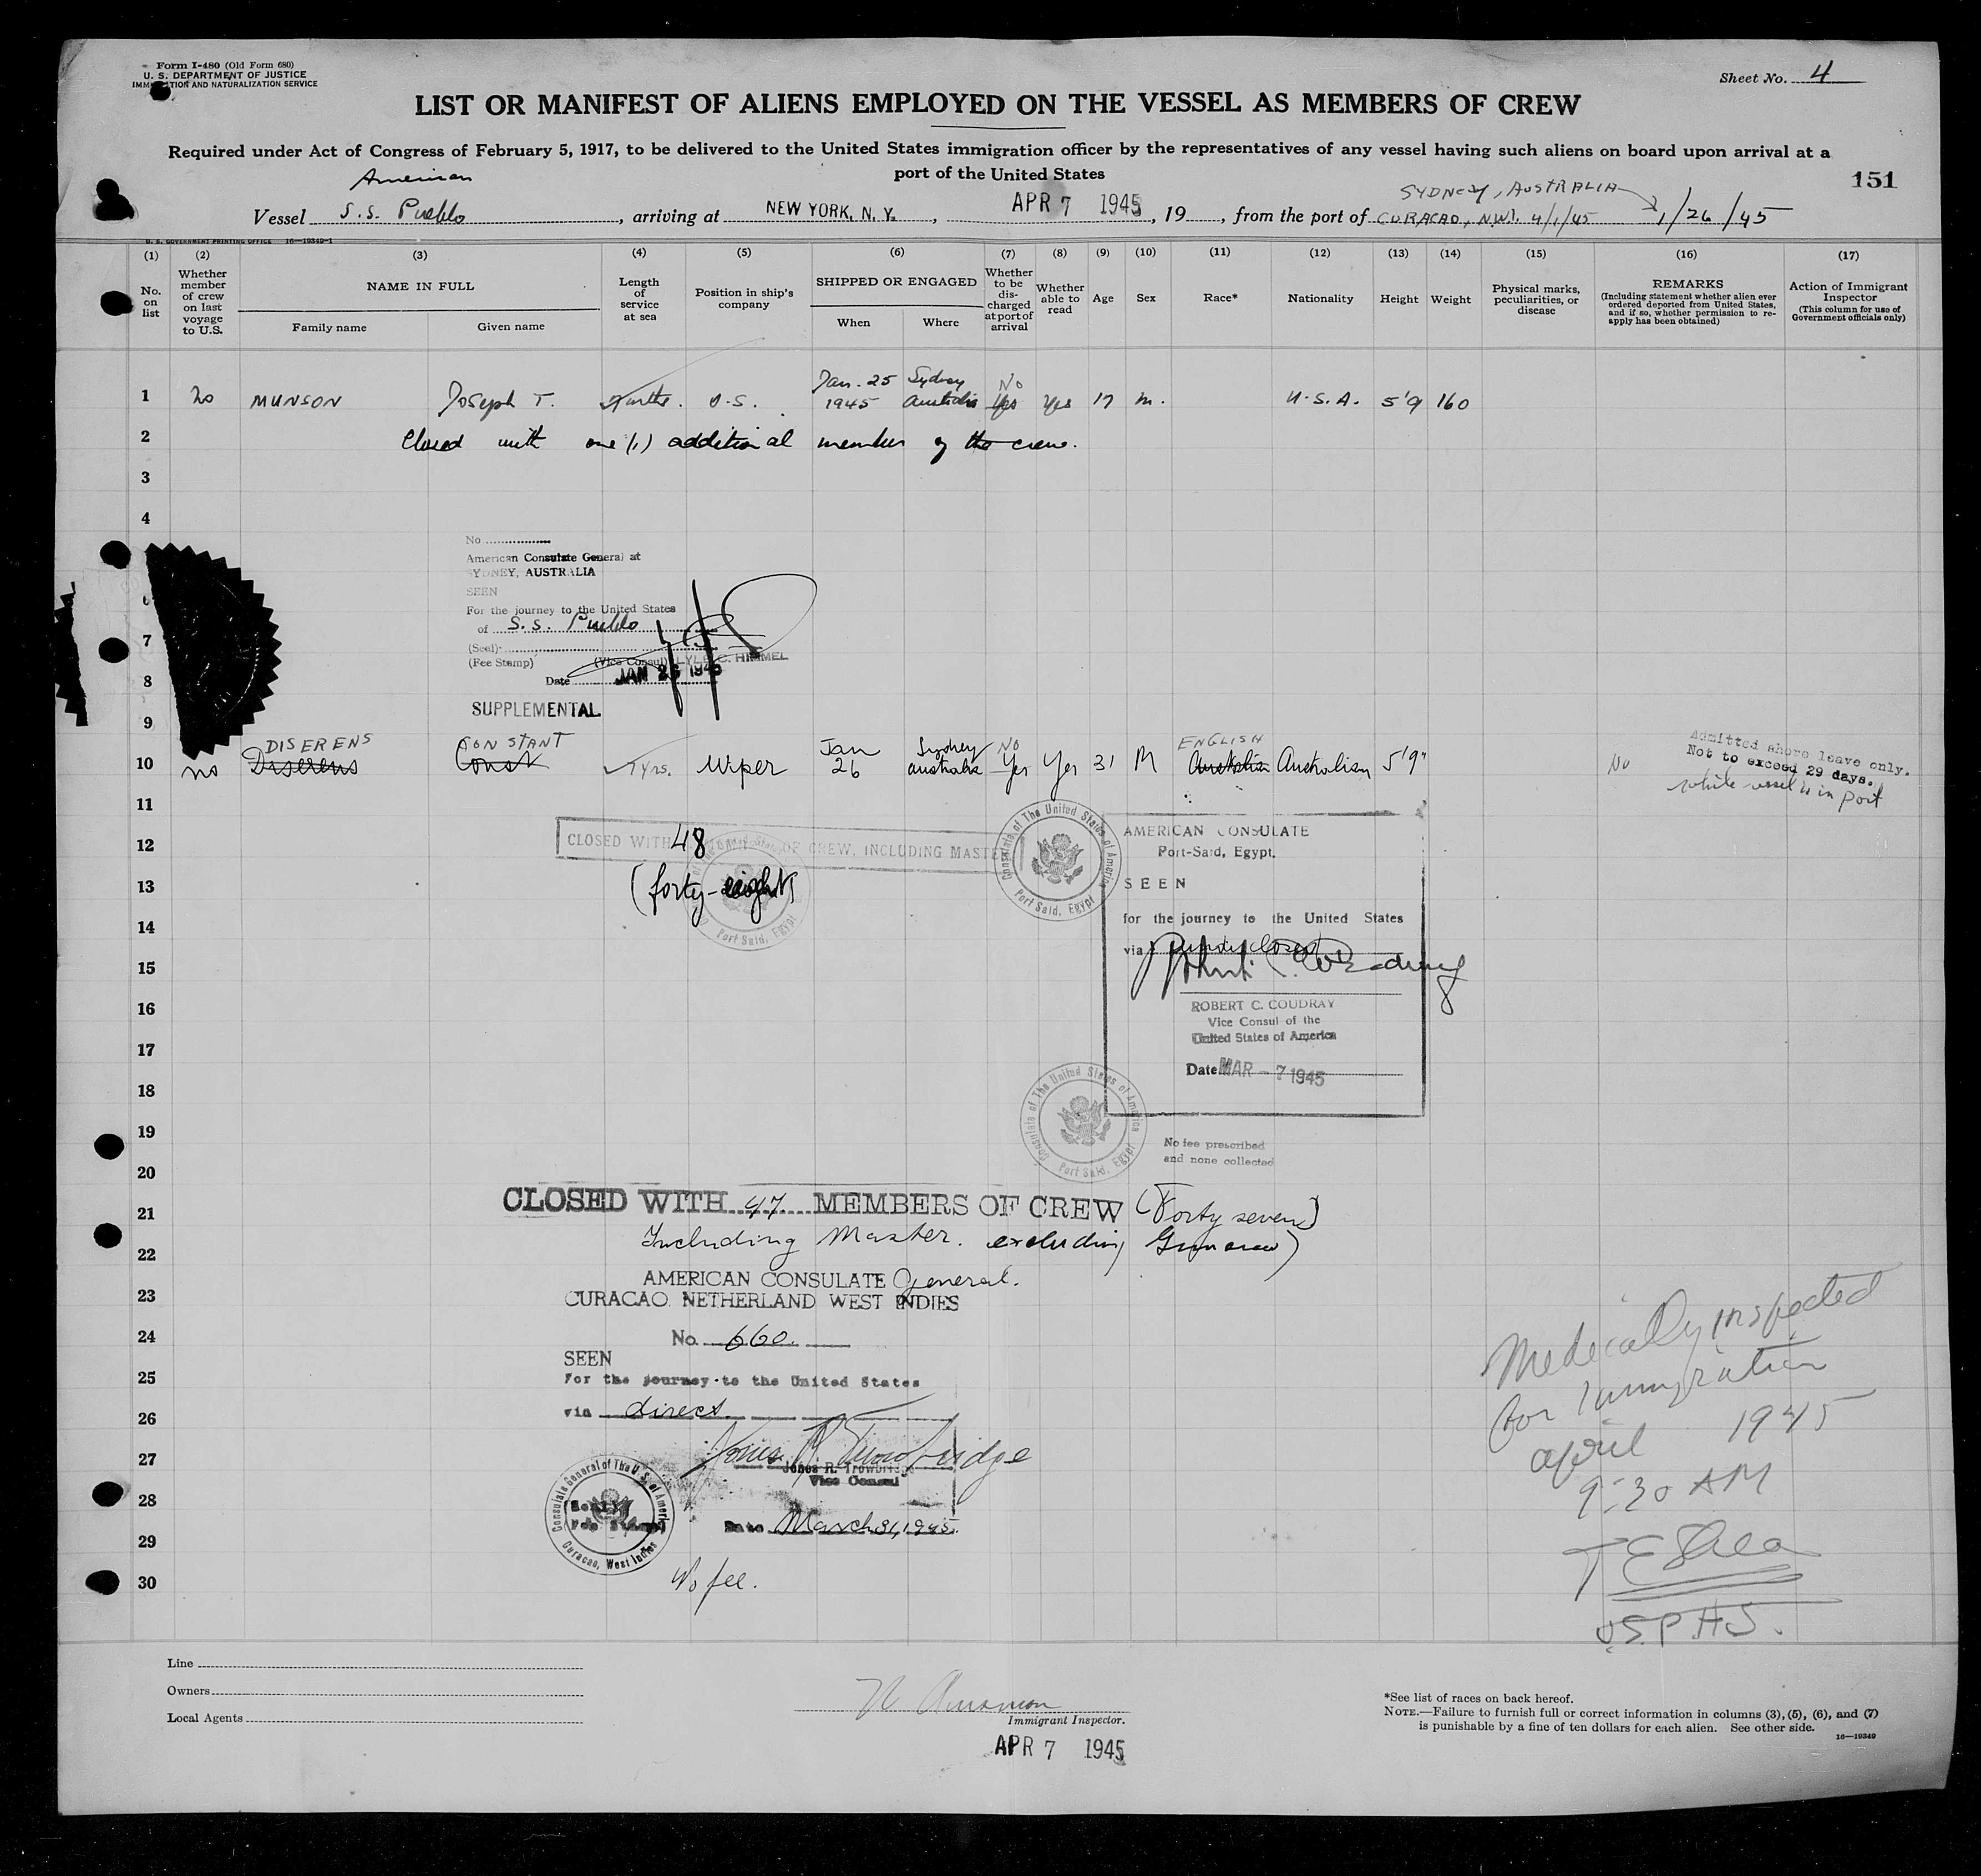 Form I-480 (Old Form 680)
U. S. DEPARTMENT OF JUSTICE
IMMIGRATION AND NATURALIZATION SERVICE
Sheet No. 4
LIST OR MANIFEST OF ALIENS EMPLOYED ON THE VESSEL AS MEMBERS OF CREW
Required under Act of Congress of February 5, 1917, to be delivered to the United States immigration officer by the representatives of any vessel having such aliens on board upon arrival at a
port of the United States
151
American
SYDNEY, AUSTRALIA
Vessel S.S. Pueblo, arriving at NEW YORK, N. Y., APR 7 1945, 19, from the port of CURACAO, N.W.I. 4/1/45 1/26/45
U. S. GOVERNMENT PRINTING OFFICE 16—19349-1
(1) (2) (3) (4) (5) (6) (7) (8) (9) (10) (11) (12) (13) (14) (15) (16) (17)
No. on list
Whether member of crew on last voyage to U.S.
NAME IN FULL
Family name
Given name
Length of service at sea
Position in ship's company
SHIPPED OR ENGAGED
When
Where
Whether to be discharged at port of arrival
Whether able to read
Age
Sex
Race*
Nationality
Height
Weight
Physical marks, peculiarities, or disease
REMARKS
(Including statement whether alien ever ordered deported from United States, and if so, whether permission to re-apply has been obtained)
Action of Immigrant Inspector
(This column for use of Government officials only)
Jan. 25 Sydney No
1 no MUNSON Joseph T. O.S. 1945 Australia Yes Yes 17 m. U.S.A. 5'9 160
2 Closed with one (1) additional member of the crew.
3
4
No
American Consulate General at
SYDNEY, AUSTRALIA
SEEN
For the journey to the United States
of S.S. Pueblo
7
(Seal)
(Fee Stamp) (Vice Consul) LYLE C. HIMMEL
8
Date JAN 26 1945
SUPPLEMENTAL
9
DISERENS CONSTANT Jan Sydney NO ENGLISH
10 no Diserens Const 7 yrs. Wiper 26 australia Yes Yes 31 M Australian Australian 5'9" No
Admitted shore leave only.
Not to exceed 29 days.
while vessel is in port
11
12
CLOSED WITH 48 OF CREW, INCLUDING MASTER
13
(forty-eight)
Consulate of The United States of America
Port Said, Egypt
Consulate of The United States of America
Port Said, Egypt
AMERICAN CONSULATE
Port-Said, Egypt.
SEEN
14
for the journey to the United States
via undisclosed
15
16
ROBERT C. COUDRAY
Vice Consul of the
United States of America
17
Date MAR - 7 1945
18
Consulate of The United States of America
Port Said, Egypt
19
No fee prescribed
and none collected
20
21
CLOSED WITH 47 MEMBERS OF CREW (Forty seven)
22
Including Master. excluding Guncrew)
AMERICAN CONSULATE General.
23
CURACAO, NETHERLAND WEST INDIES
24
No. 660
SEEN
25
For the journey to the United States
26
via direct.
27
Jones R. Trowbridge
Jones R. Trowbridge
Vice Consul
28
Consulate General of The U.S. of America
Curacao, West Indies
(Seal)
Fee Stamp
Date March 31, 1945.
29
30
No fee.
Medically inspected
for Immigration
april 1945
9:30 AM
T E Shea
U.S.P.H.S.
Line
Owners
Local Agents
Immigrant Inspector.
APR 7 1945
*See list of races on back hereof.
NOTE.—Failure to furnish full or correct information in columns (3), (5), (6), and (7)
is punishable by a fine of ten dollars for each alien. See other side.
16—19349